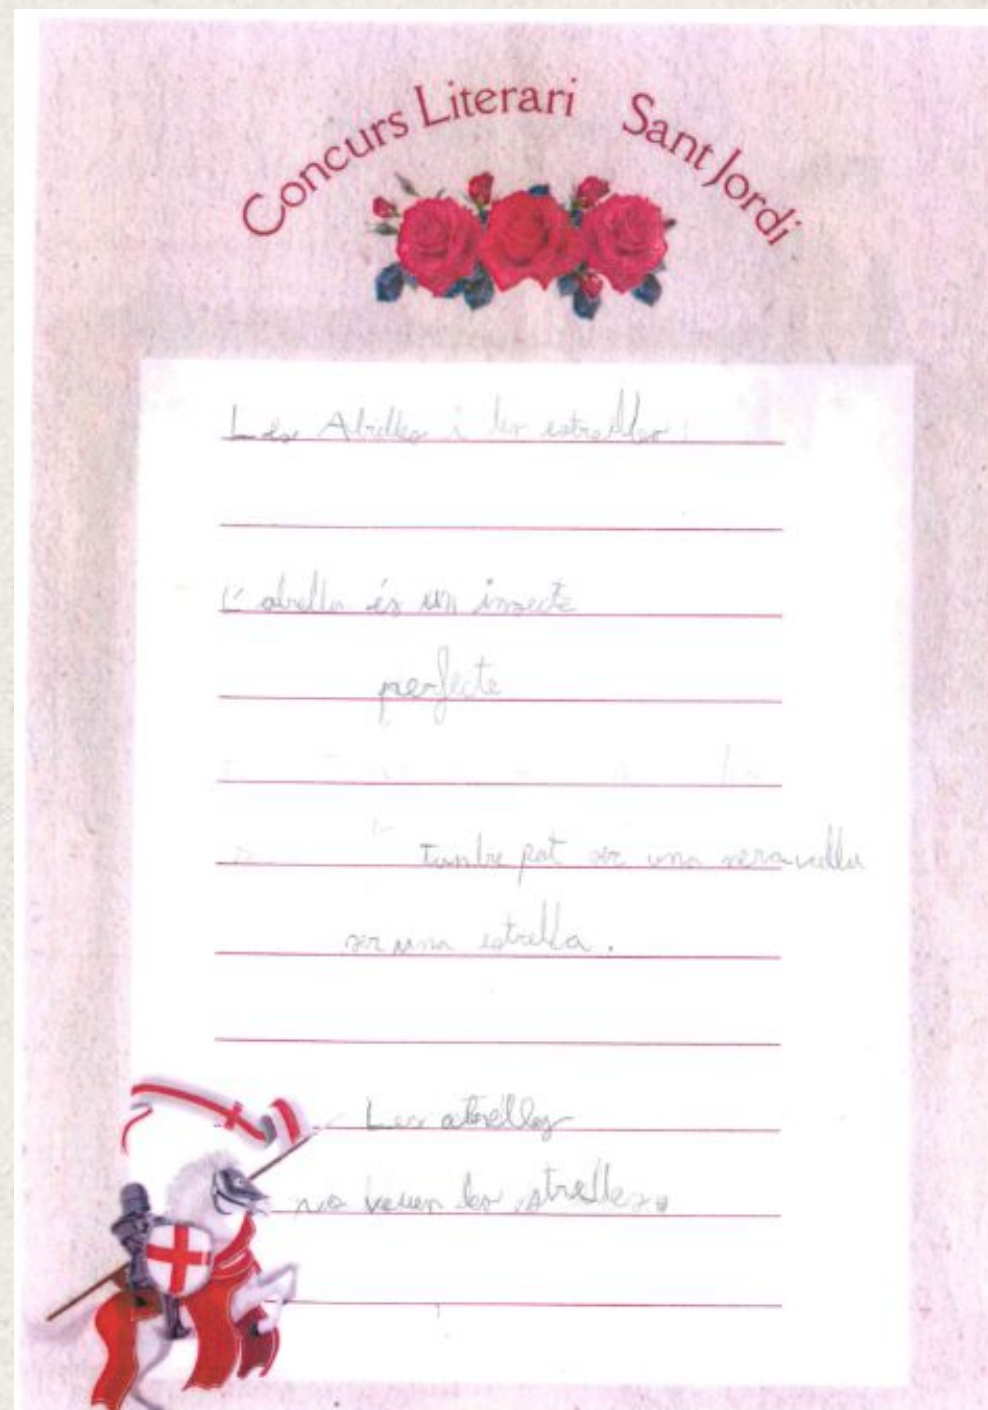 Concurs Literari Sant Jordi
Les Abelles i les estrelles
L'abella és un insecte
perfecte
tambe pot ser una meravella
ser una estrella.
Les abelles
no veuen les strelles.